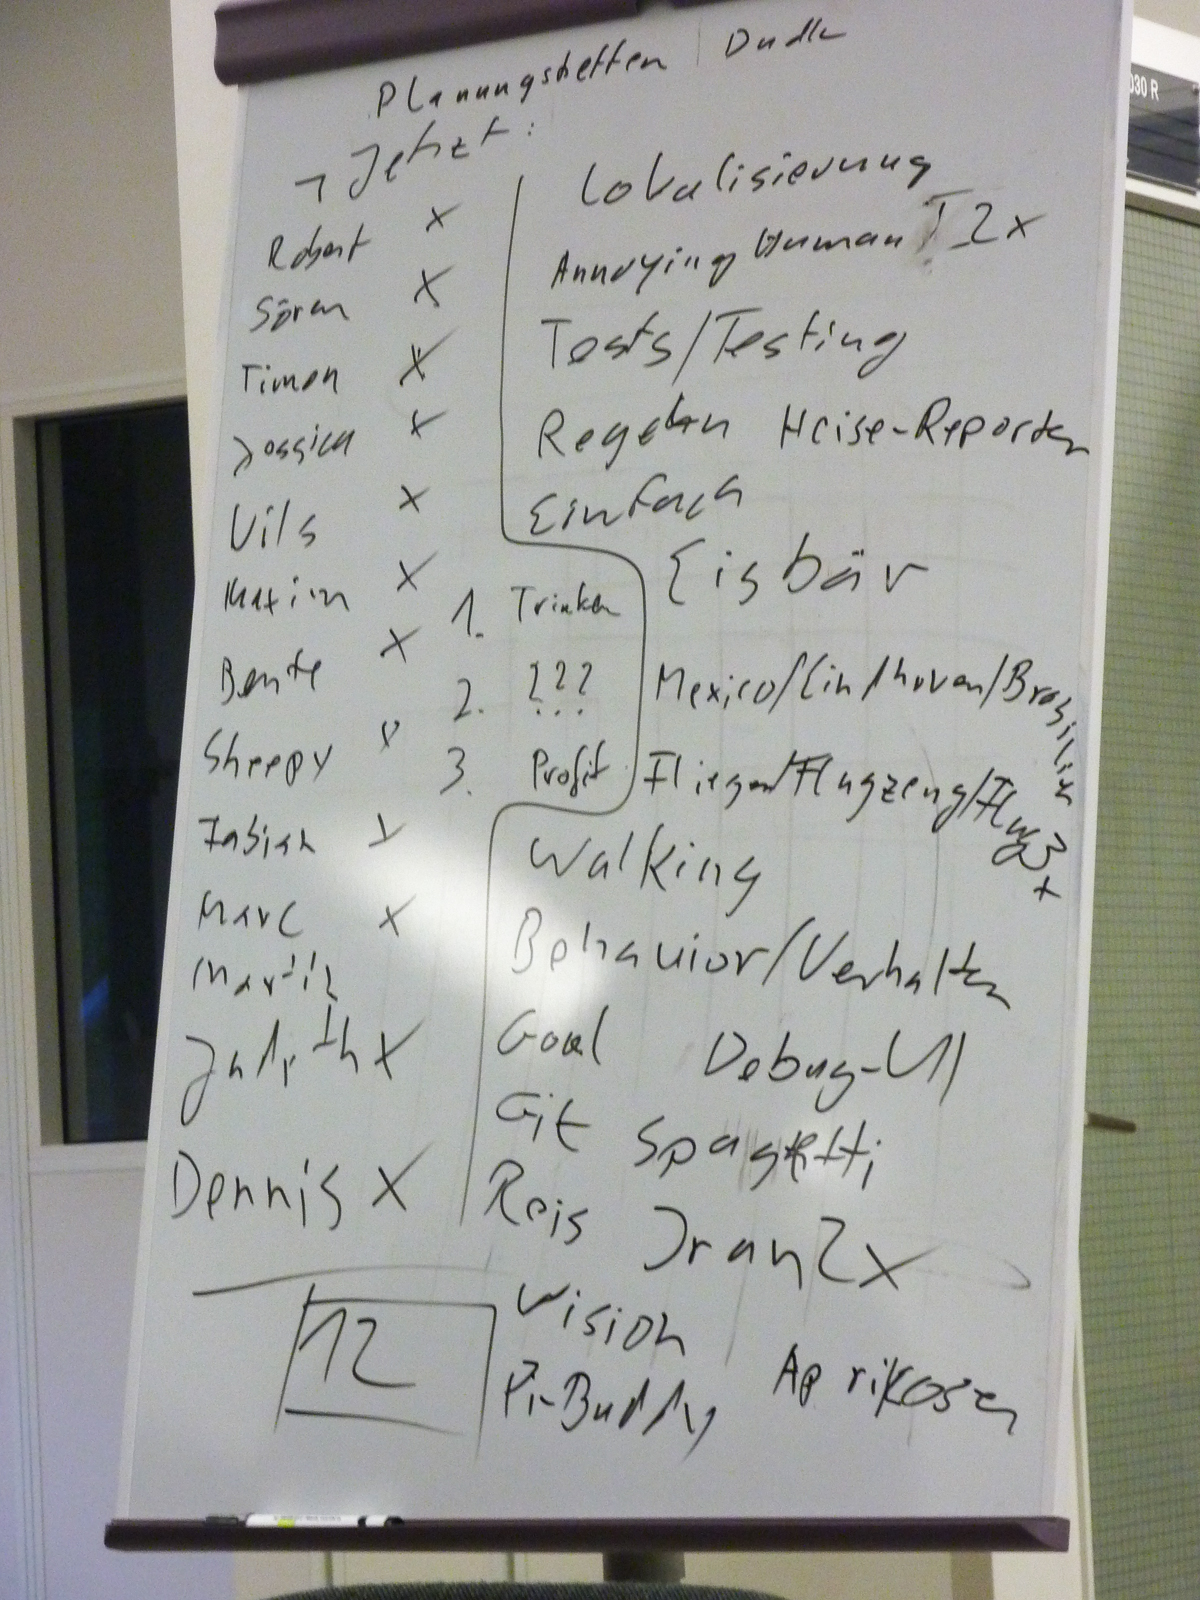 Planungstreffen Dudle
→ Jetzt:
Robert x
Sören x
Timon x
Jessica x
Nils x
Maxim x
Bente x
Sheepy x
Fabian x
Marc x
Martin
Judith x
Dennis x
12
Lokalisierung
Annoying Human I 2x
Tests/Testing
Regeln Heise-Reporter
Einfach
Eisbär
1. Trinken
2. ???
3. Profit
Mexico/Eindhoven/Brasilien
Fliegen/Flugzeug/Flug 3x
Walking
Behavior/Verhalten
Goal Debug-UI
Git Spagetti
Reis Iran 2x
Vision
Pi-Buddy Aprikosen
030 R